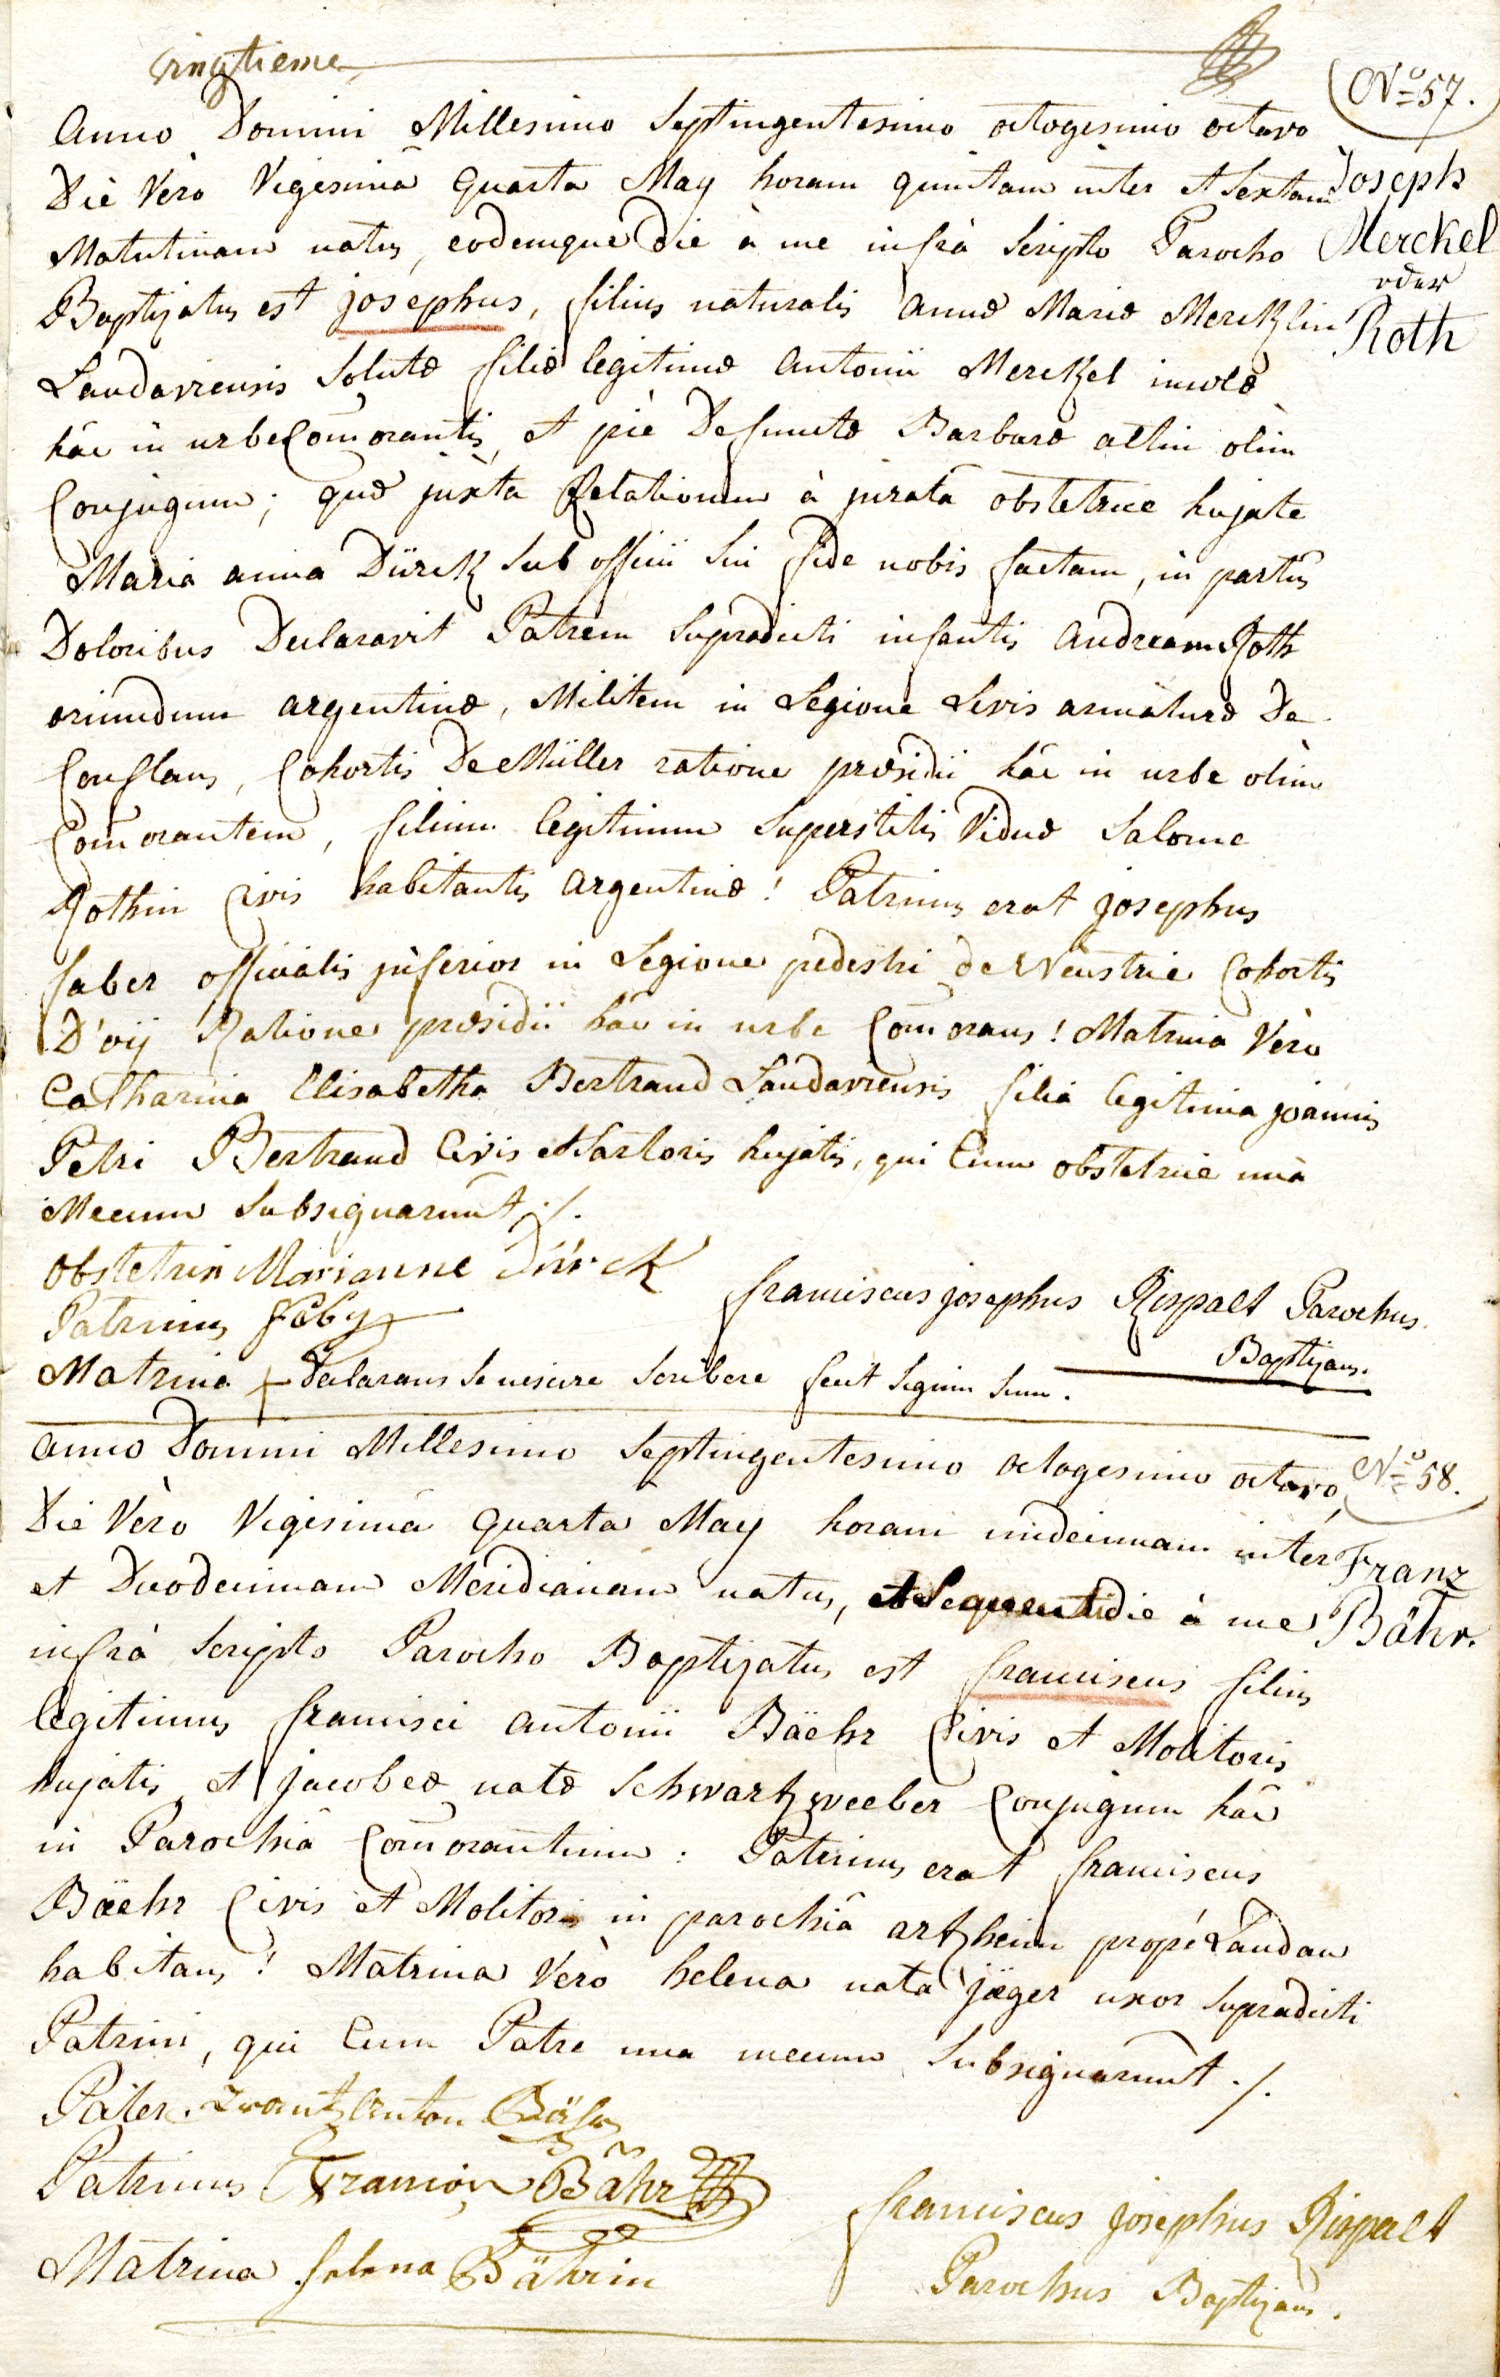 vingtieme
Anno Domini Millesimo Septingentesimo octogesimo octavo
Die Vèro Vigesimâ Quarta May horam quintam inter et Sextam
Matutinam natus, eodemque Die à me infrà Scripto Parocho
Baptizatus est josephus, filius naturalis Annæ Mariæ Mercklin
Landaviensis Solutæ filiæ legitimæ Antonii Merckel incolæ
hâc in urbe Com̄orantis, et piè Defunctæ Barbaræ allin olim
Conjugum; quæ juxtà Relationem à juratâ obstetrice hujate
Maria anna Dürck Sub officii Sui fide nobis factam, in partûs
Doloribus Declaravit Patrem Supradicti infantis Andream Roth
oriundum argentinæ, Militem in Legione Levis armaturæ De
Conflans, Cohortis De Müller ratione præsidii hâc in urbe olim
Com̄orantem, filium legitimum Superstitis Viduæ Salome
Rothin Civis habitantis Argentinæ! Patrinus erat josephus
faber officialis jnferior in Legione pedestri de Neustrie Cohortis
D'oÿ Ratione præsidii hâc in urbe Com̄orans! Matrina Vèro
Catharina Elisabetha Bertrand Landaviensis filia legitima joannis
Petri Bertrand Civis et Sartoris hujatis, qui Cum obstetrice unà
Mecum Subsignarunt ./.
Obstetrix Marianne Dürck
Patrinus faby
franciscus josephus Rispalt Parochus
Baptizans.
Matrina + Declarans Se nescire Scribere fecit Signum Suum.
Nº 57.
Joseph
Merckel
oder
Roth
Anno Domini Millesimo Septingentesimo octogesimo octavo,
Die Vèro Vigesimâ Quarta May horam undecimam inter
et Duodecimam Meridianam natus, et Sequenti die à me
infrà Scripto Parocho Baptizatus est franciscus filius
legitimus francisci Antonii Bäehr Civis et Molitoris
hujatis et jacobeæ natæ Schwartzweeber Conjugum hâc
in Parochiâ Com̄orantium: Patrinus erat franciscus
Bäehr Civis et Molitor in parochiâ artzheim propé Landau
habitans! Matrina Vèrò helena nata jæger uxor Supradicti
Patrini, qui Cum Patre una mecum Subsignarunt ./.
Nº 58.
Franz
Bähr.
Pater Frantz Anton Bähr
Patrinus Bähr
Matrina Helena Bährin
franciscus josephus Rispalt
Parochus Baptizans.